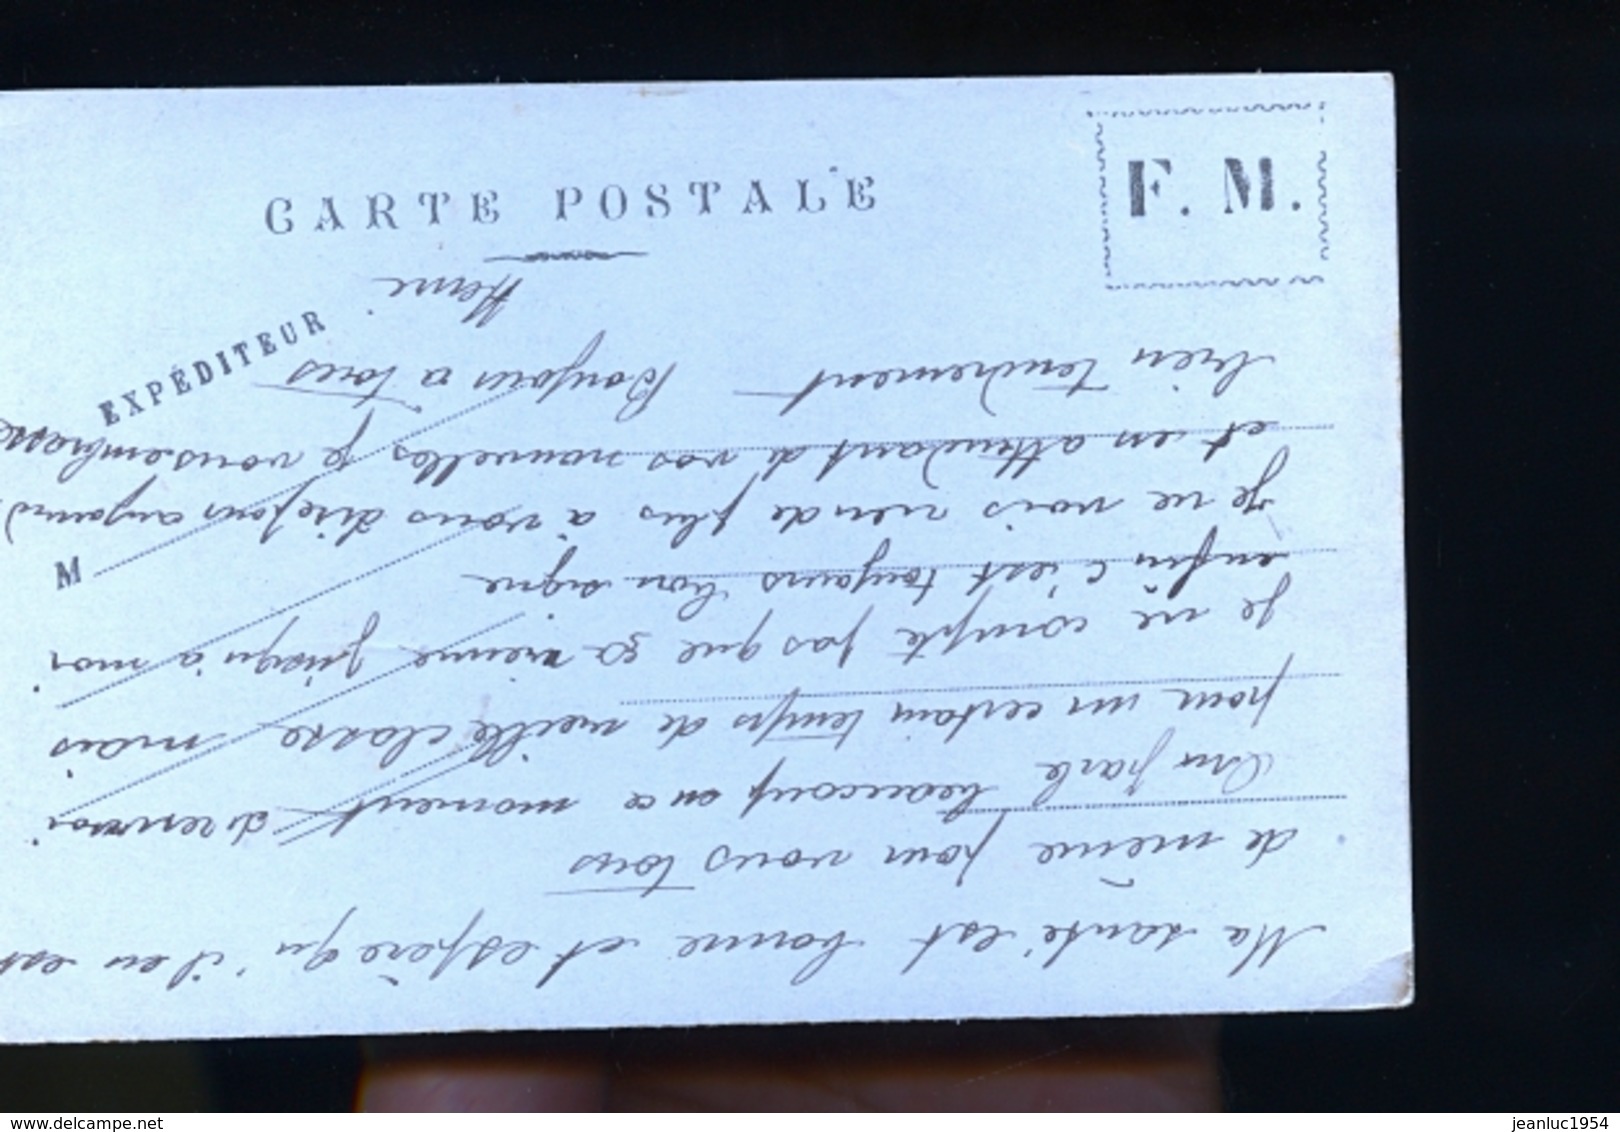 CARTE POSTALE
F. M.
EXPÉDITEUR
M
Ma santé est bonne et espère qu'il en est
de même pour vous tous
On parle beaucoup en ce moment
pour un certain temps de vieille classe mais
je ne compte pas que ça vienne jusqu'à moi
enfin c'est toujours bon signe
Je ne vois rien de plus à vous dire pour aujourd
et en attendant de vos nouvelles je vous embrasse
bien tendrement Bonjour a tous
delcampe.net
jeanluc1954